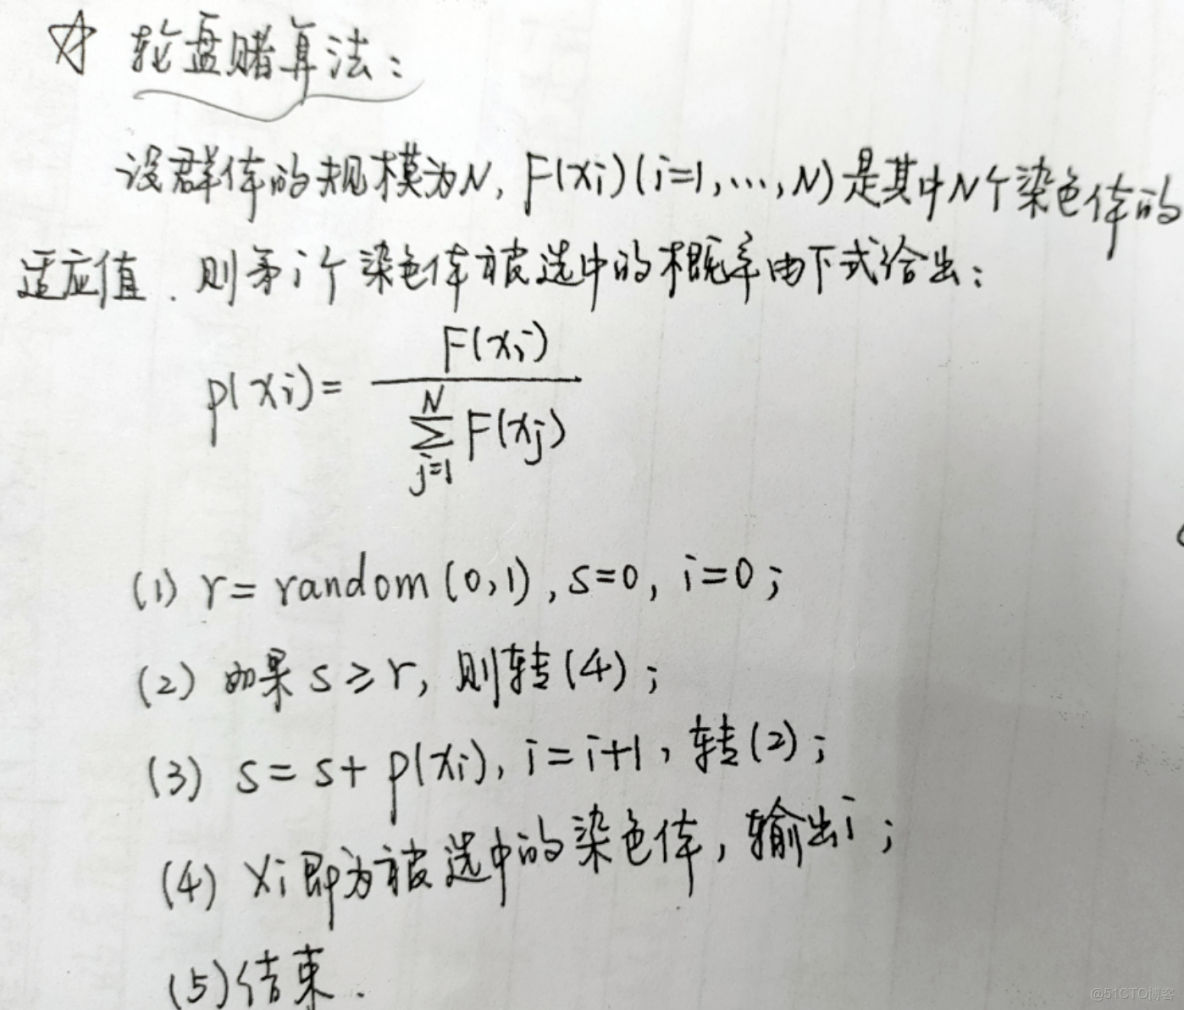 ☆ 轮盘赌算法：
设群体的规模为N, F(xi)(i=1,…,N)是其中N个染色体的
适应值. 则第i个染色体被选中的概率由下式给出：
p(xi)= F(xi) / ∑_{j=1}^{N} F(xj)
(1) r= random(0,1), s=0, i=0；
(2) 如果 s≥r, 则转(4)；
(3) s= s+ p(xi), i=i+1, 转(2)；
(4) xi即为被选中的染色体，输出i；
(5)结束.
@51CTO博客